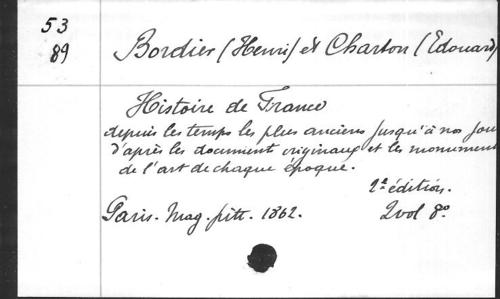 53
89
Bordier (Henri) et Charton (Edouard)
Histoire de France
depuis les temps les plus anciens jusqu'à nos jou
d'après les document originaux et les monument
de l'art de chaque époque.
2e édition.
Paris. Mag. pitt. 1862. 2 vol 8o.